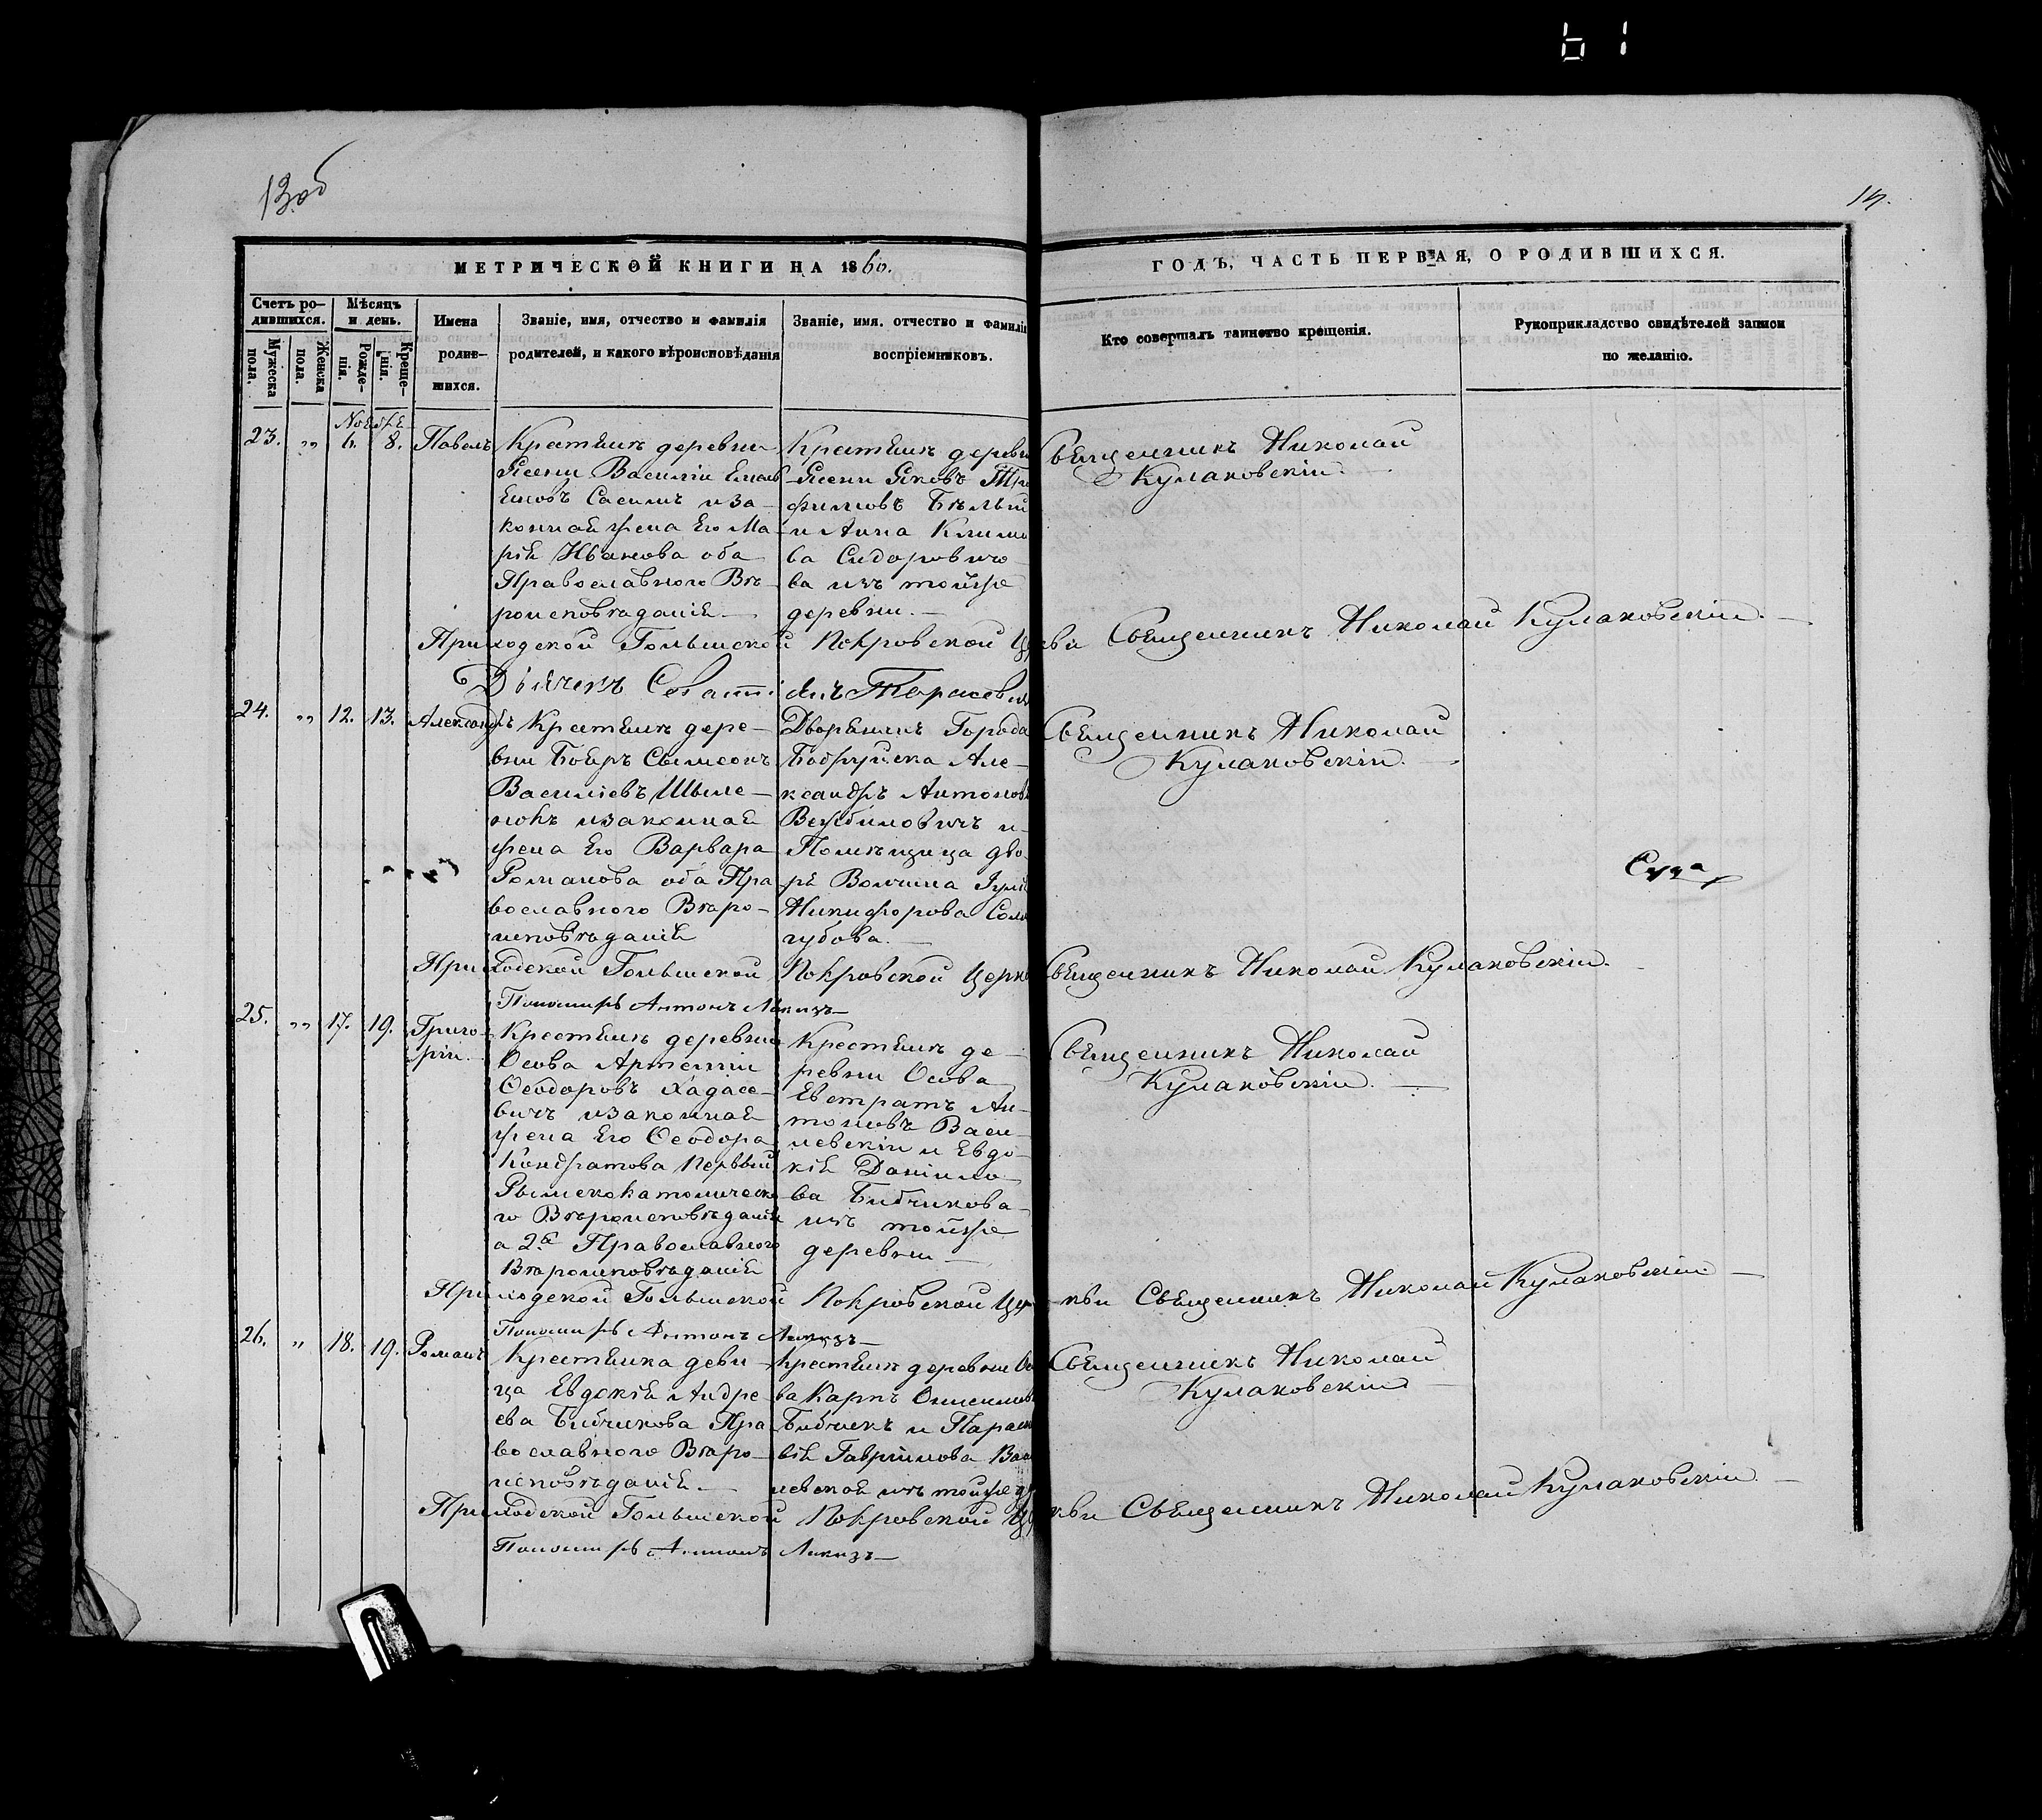 61
13об
14.
МЕТРИЧЕСКОЙ КНИГИ НА 1860.
ГОДЪ, ЧАСТЬ ПЕРВАЯ, О РОДИВШИХСЯ.
Счетъ ро-
дившихся.
Мужеска
пола.
Женска
пола.
Мѣсяцъ
и день.
Рожде-
нія.
Креще-
нія.
Имена
родив-
шихся.
Званіе, имя, отчество и фамилія
родителей, и какого вѣроисповѣданія
Званіе, имя. отчество и фамилія
воспріемниковъ.
Кто совершалъ таинство крещенія.
Рукоприкладство свидѣтелей записи
по желанію.
Ноября
23. „ 6. 8. Павелъ
Крестьянъ деревни
Ясени Василій Емель
яновъ Сасимъ и за-
конная жена Его Ма-
рія Иванова оба
Православнаго Вѣ-
роисповѣданія
Крестьянъ деревни
Ясени Яковъ Тро
фимовъ Бѣлый
и Анна Климо
ва Сидорович
ва изъ тойже
деревни.
Священникъ Николай
Кулаковскій.
Приходской Голынской Покровской Церкви Священникъ Николай Кулаковскій.
Дьячекъ Севастіянъ Тарасевичъ
24. „ 12. 13. Александръ
Крестьянъ дере-
вни Бояръ Сымеонъ
Василіевъ Швыле-
нокъ и законная
жена Его Варвара
Романова оба Пра
вославнаго Вѣро-
исповѣданія
Дворянинъ Города
Бобруйска Але-
ксандръ Антоновъ
Вержбиловичъ и
Помѣщица дво-
ра Волчина Іулія
Никифорова Соло
губова.
Священникъ Николай
Кулаковскій.
Приходской Голынской Покровской Церкви Священникъ Николай Кулаковскій.
Пономарь Антонъ
25. „ 17. 19. Григо-
рій.
Крестьянъ деревни
Осова Артемій
Ѳеодоровъ Хадасе-
вичъ и законная
жена Его Ѳеодора
Кондратова Первый
Рымскокатолическа
го Вѣроисповѣданія
а 2я Православнаго
Вѣроисповѣданія
Крестьянъ де-
ревни Осова
Евстратъ Ан-
тоновъ Васи-
левскій и Евдо-
кія Данило
ва Бибчикова
изъ тойже
деревни
Священникъ Николай
Кулаковскій.
Приходской Голынской Покровской Церкви Священникъ Николай Кулаковскій
Пономарь Антонъ
26. „ 18. 19. Романъ
Крестьянка деви
ца Евдокія Андре
ева Бибчикова Пра
вославнаго Вѣро-
исповѣданія.
Крестьянъ деревни Осо
ва Карпъ Онисимовъ
Бибчикъ и Параске
вія Гаврилова Васи
левская изъ тойже
Священникъ Николай
Кулаковскій
Приходской Голынской Покровской Церкви Священникъ Николай Кулаковскій
Пономарь Антонъ